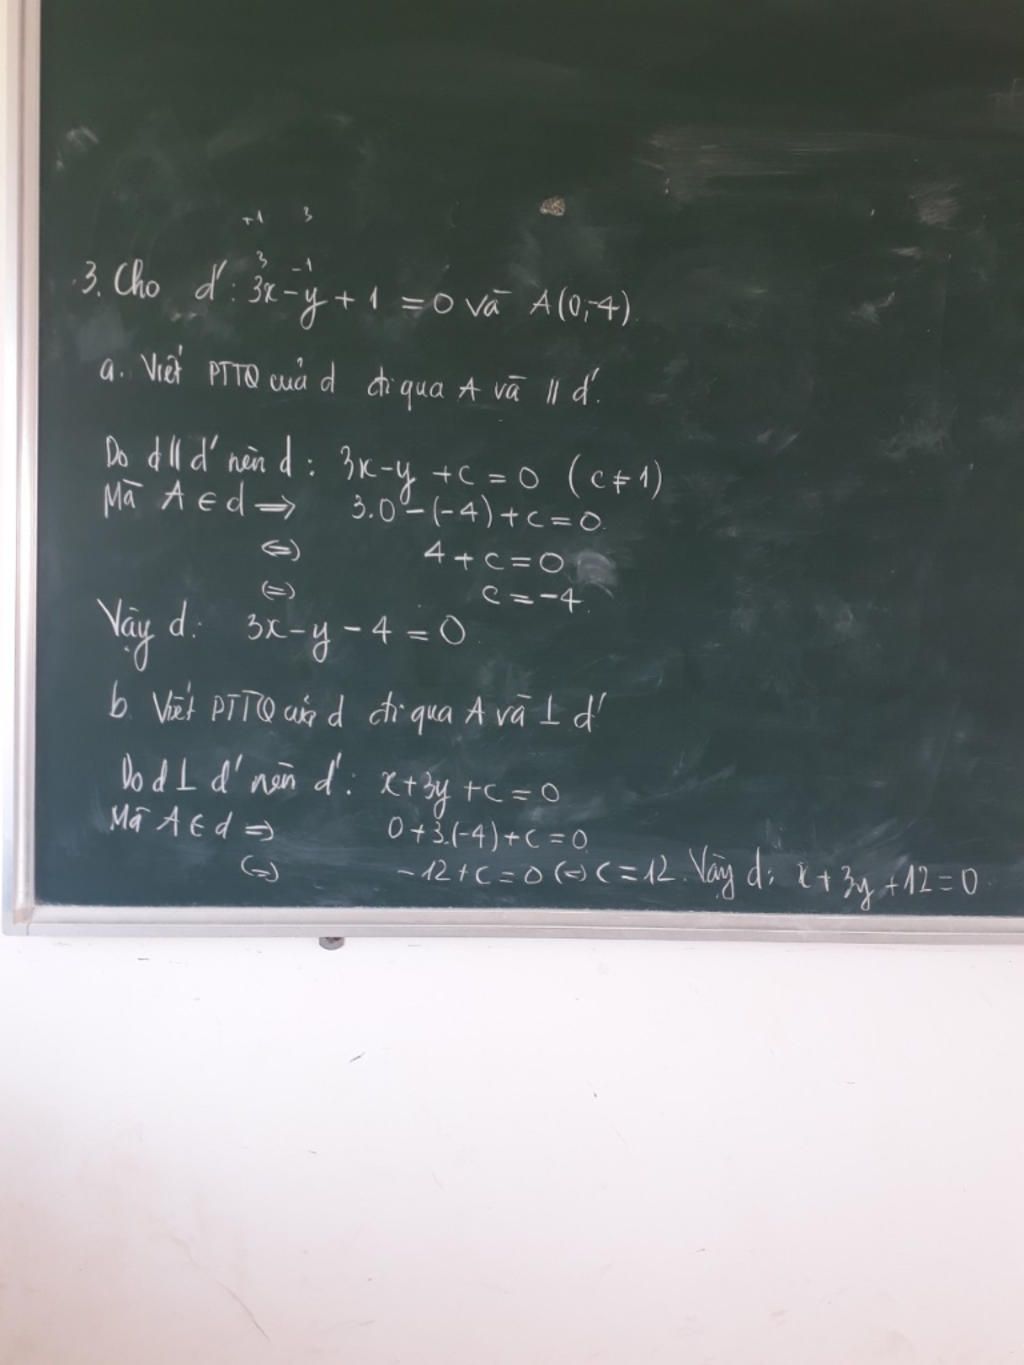 +1 3
3 -1
3. Cho d': 3x-y+1=0 và A(0,-4).
a. Viết PTTQ của d đi qua A và // d'.
Do d // d' nên d: 3x-y+c=0 (c≠1)
Mà A ∈ d => 3.0-(-4)+c=0.
<=> 4+c=0
<=> c=-4.
Vậy d: 3x-y-4=0.
b. Viết PTTQ của d đi qua A và ⊥ d'
Do d ⊥ d' nên d': x+3y+c=0
Mà A ∈ d => 0+3.(-4)+c=0
<=> -12+c=0 <=> c=12. Vậy d: x+3y+12=0.